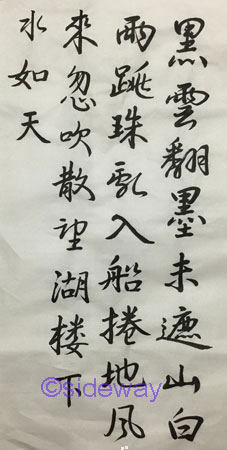 黑雲翻墨未遮山白
雨跳珠亂入船捲地風
來忽吹散望湖楼下
水如天
©sideway